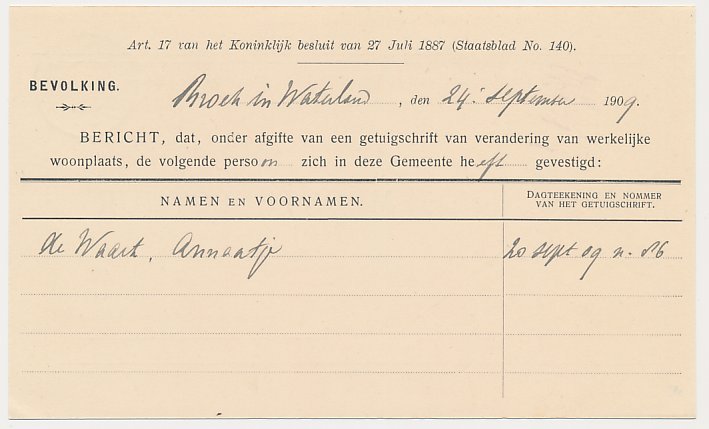 Art. 17 van het Koninklijk besluit van 27 Juli 1887 (Staatsblad No. 140).
BEVOLKING.
Broek in Waterland, den 24 September 1909.
BERICHT, dat, onder afgifte van een getuigschrift van verandering van werkelijke
woonplaats, de volgende persoon zich in deze Gemeente heeft gevestigd:
NAMEN EN VOORNAMEN.
DAGTEEKENING EN NOMMER
VAN HET GETUIGSCHRIFT.
de Waart, Annaatje
20 sept 09 n.